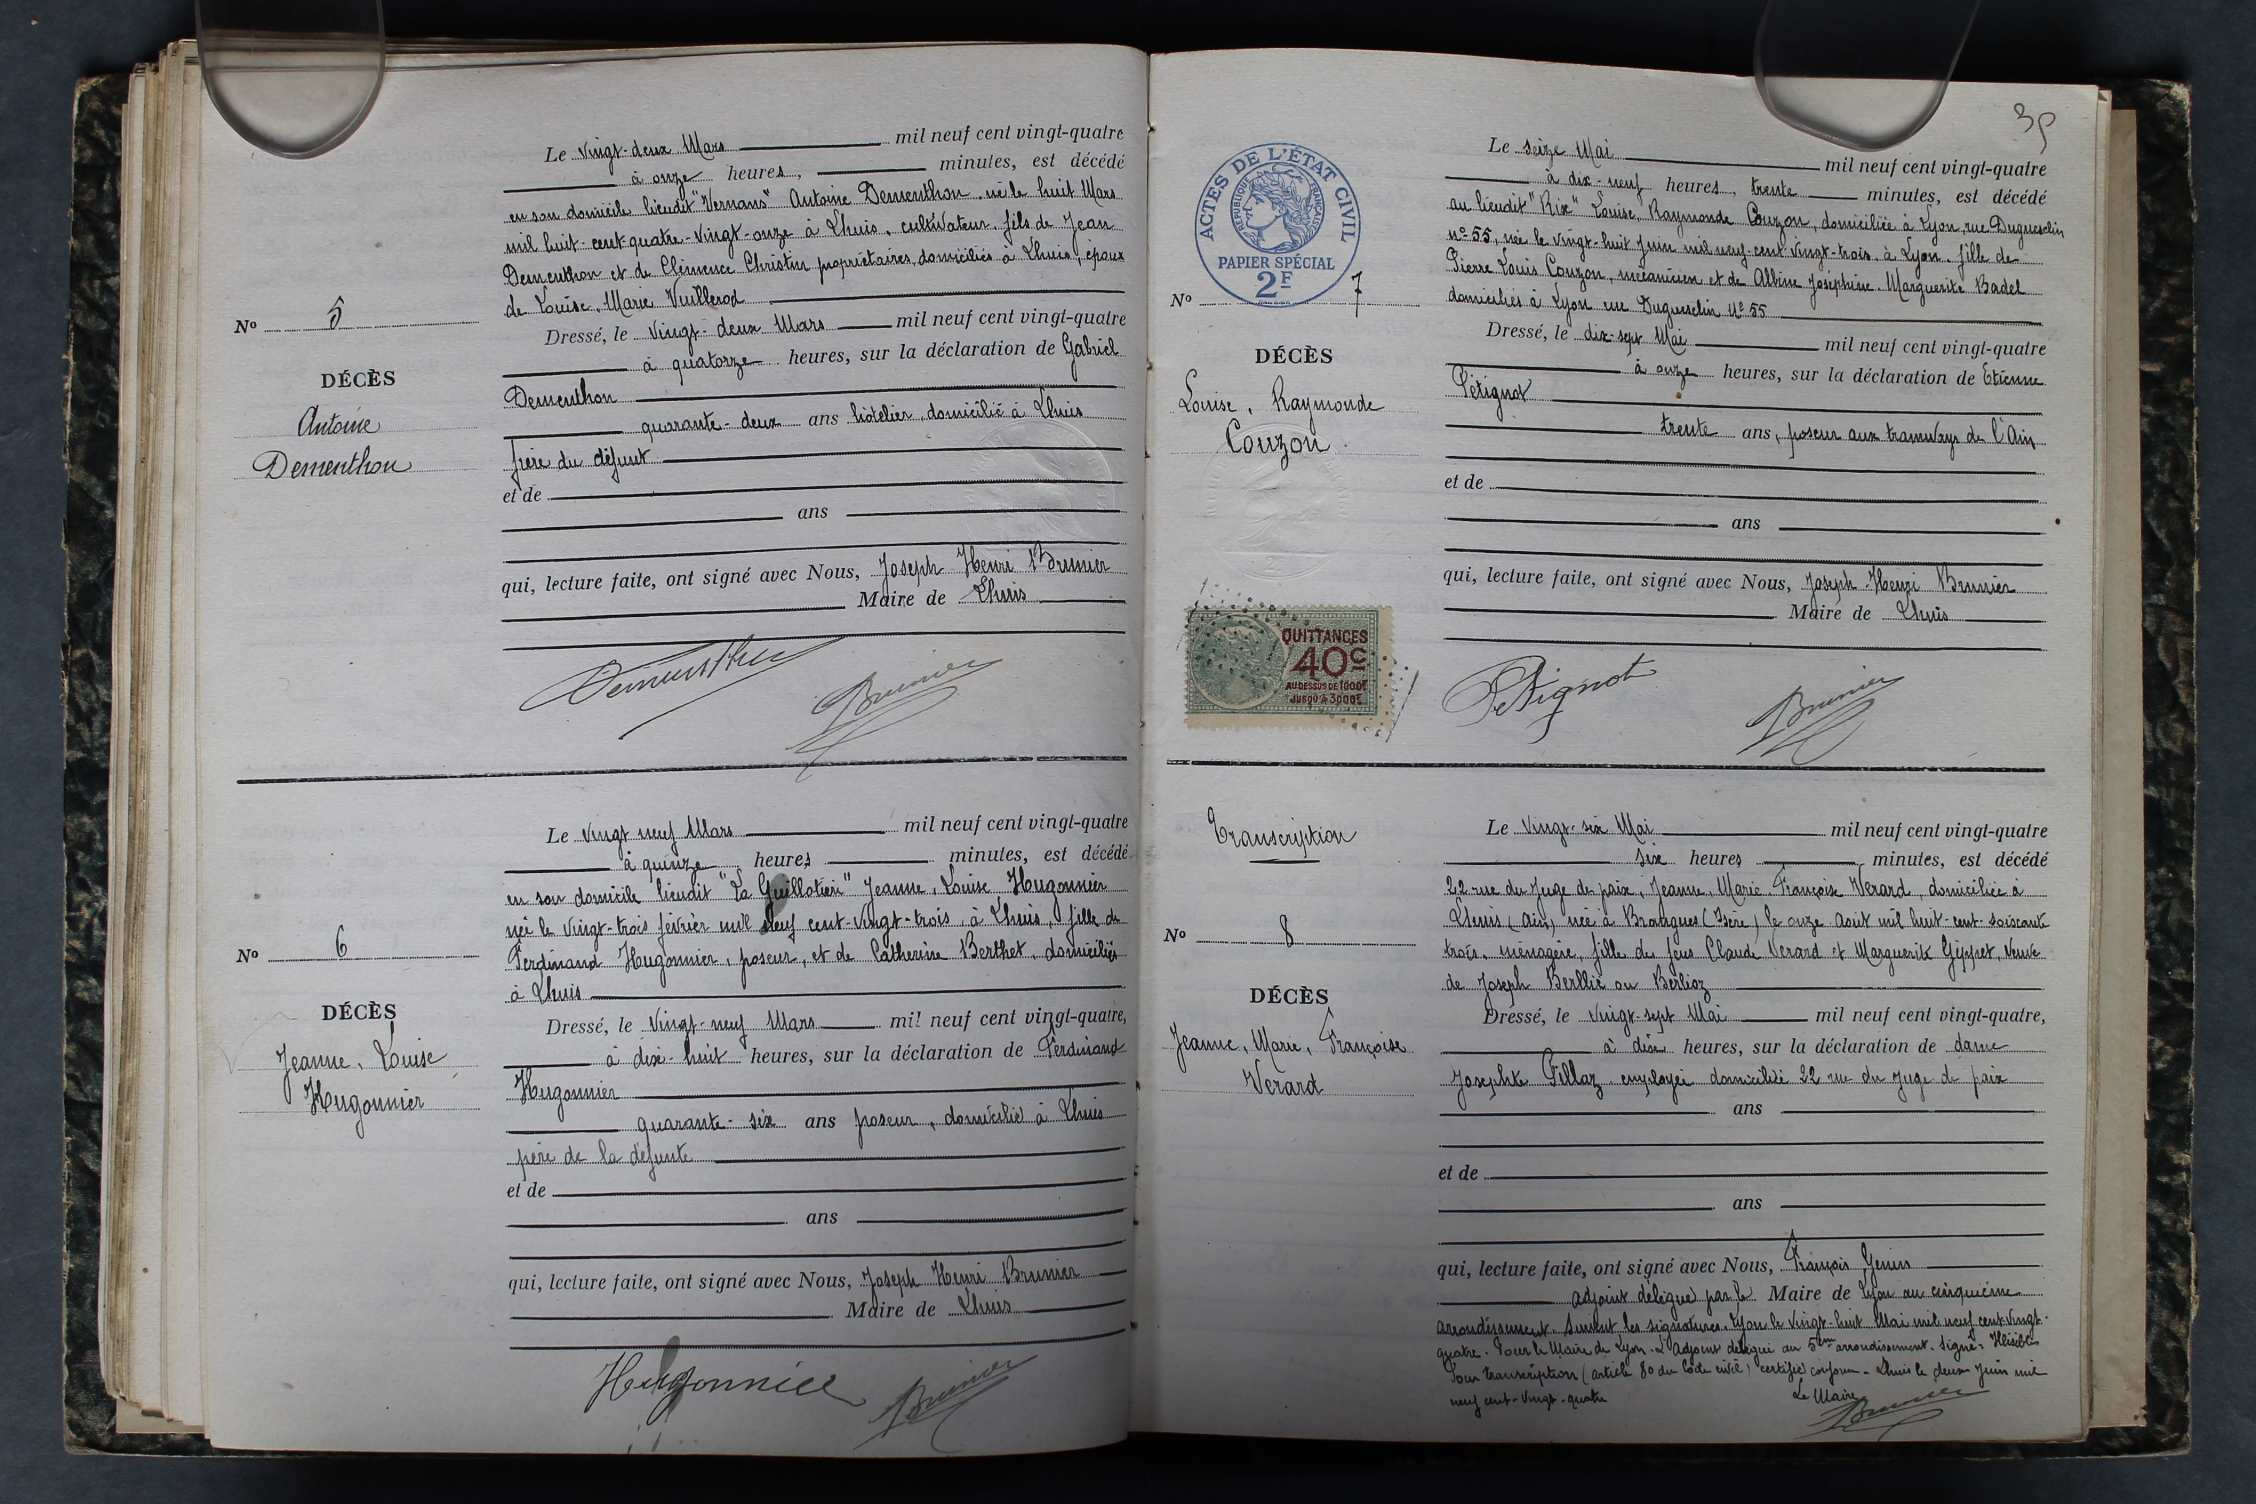 Le vingt-deux Mars mil neuf cent vingt-quatre
à onze heures, minutes, est décédé
en son domicile lieudit "Vernans" Antoine Dementhon, né le huit Mars
mil huit-cent-quatre-vingt-onze à Lhuis, cultivateur, fils de Jean
Dementhon et de Clémence Christin propriétaires, domiciliés à Lhuis, époux
de Louise, Marie Vuillerod
No 5
Dressé, le vingt-deux Mars mil neuf cent vingt-quatre
à quatorze heures, sur la déclaration de Gabriel
DÉCÈS
Dementhon
Antoine
Dementhon
quarante-deux ans hôtelier, domicilié à Lhuis
frère du défunt
et de
ans
qui, lecture faite, ont signé avec Nous, Joseph Henri Brunier
Maire de Lhuis
Dementhon
Brunier
Le vingt neuf Mars mil neuf cent vingt-quatre
à quinze heures minutes, est décédé
en son domicile lieudit "La Guillotière" Jeanne, Louise Hugonnier
née le vingt-trois février mil neuf cent-vingt-trois, à Lhuis, fille de
Ferdinand Hugonnier, poseur, et de Catherine Berthet, domiciliés
à Lhuis
No 6
DÉCÈS
Jeanne, Louise
Hugonnier
Dressé, le vingt-neuf Mars mil neuf cent vingt-quatre,
à dix-huit heures, sur la déclaration de Ferdinand
Hugonnier
quarante-six ans poseur, domicilié à Lhuis
père de la défunte
et de
ans
qui, lecture faite, ont signé avec Nous, Joseph Henri Brunier
Maire de Lhuis
Hugonnier
Brunier
39
ACTES DE L'ÉTAT CIVIL
RÉPUBLIQUE FRANÇAISE
PAPIER SPÉCIAL
2F
Le seize Mai mil neuf cent vingt-quatre
à dix-neuf heures, trente minutes, est décédé
au lieudit "Rix" Louise, Raymonde Couzon, domiciliée à Lyon, rue Duguesclin
no 55, née le vingt-huit Juin mil neuf-cent-vingt-trois, à Lyon, fille de
Pierre Louis Couzon, mécanicien et de Albine Joséphine, Marguerite Badel
domiciliés à Lyon rue Duguesclin No 55
No 7
DÉCÈS
Louise, Raymonde
Couzon
Dressé, le dix-sept Mai mil neuf cent vingt-quatre
à onze heures, sur la déclaration de Etienne
Pétignot
trente ans, poseur aux tramways de l'Ain
et de
ans
qui, lecture faite, ont signé avec Nous, Joseph Henri Brunier
Maire de Lhuis
QUITTANCES
40c
AU DESSUS DE 1000F
JUSQU'À 3000F
Petignot
Brunier
Transcription
Le vingt-six Mai mil neuf cent vingt-quatre
six heures minutes, est décédé
22 rue du Juge de paix, Jeanne, Marie Françoise Verard, domiciliée à
Lhuis (Ain) née à Brangues (Isère) le onze août mil huit-cent-soixante
trois, ménagère, fille des feus Claude Verard et Marguerite Gippet, Veuve
de Joseph Berllié ou Berlioz
No 8
DÉCÈS
Jeanne, Marie, Françoise
Verard
Dressé, le vingt-sept Mai mil neuf cent vingt-quatre,
à dix heures, sur la déclaration de dame
Josephte Fillaz employée domiciliée 22 rue du Juge de paix
ans
et de
ans
qui, lecture faite, ont signé avec Nous, François Genin
adjoint délégué par le Maire de Lyon au cinquième
arrondissement. Suivent les signatures. Lyon le vingt-huit Mai mil neuf cent vingt-
quatre. Pour le Maire de Lyon. L'adjoint délégué au 5ème arrondissement. Signé:
Pour transcription (article 80 du Code civil) certifié conforme - Lhuis le deux Juin mil
neuf cent-vingt-quatre
Le Maire
Brunier